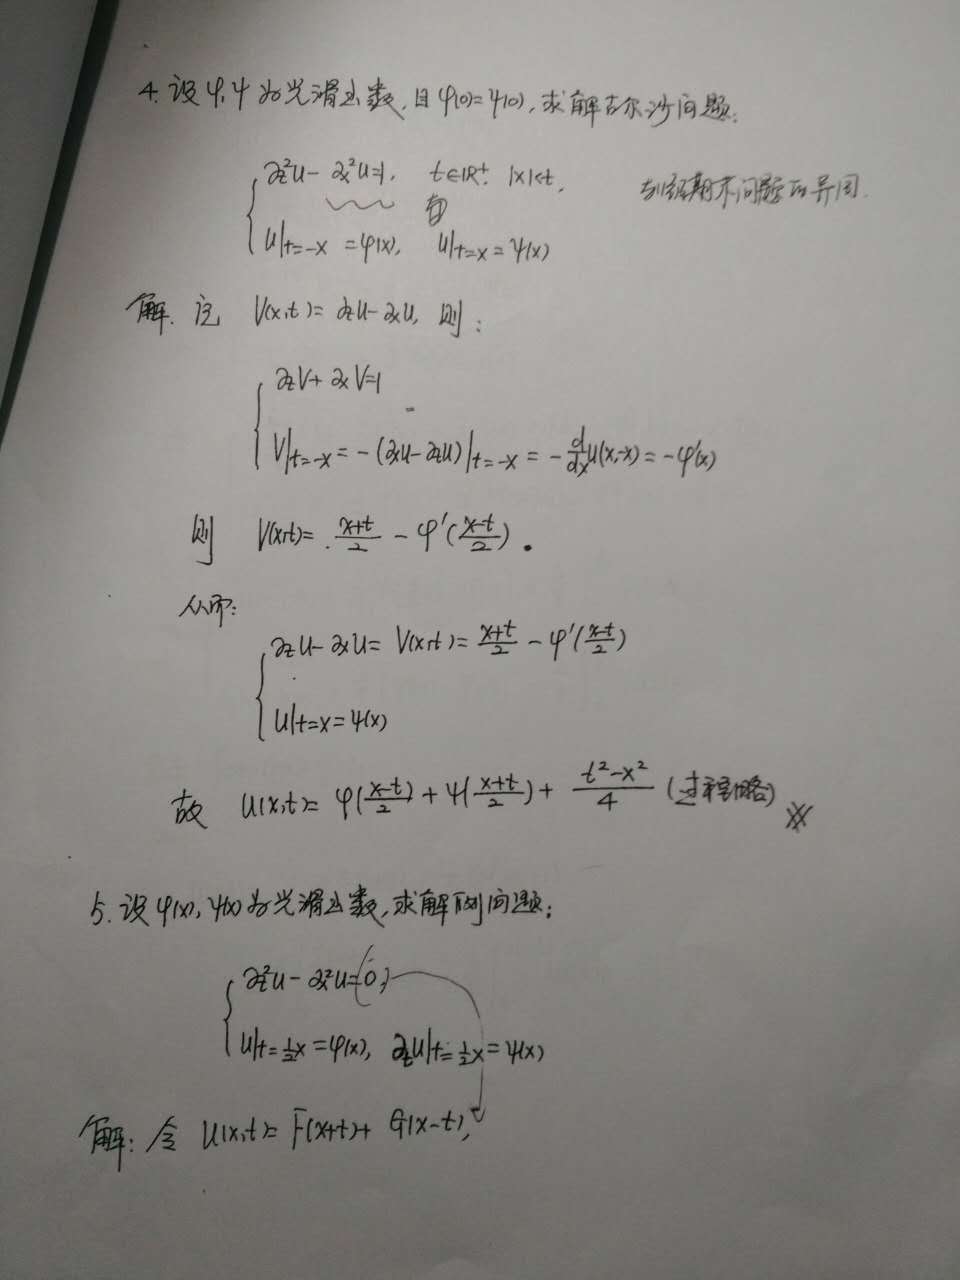 4. 设φ,ψ为光滑函数,且φ(0)=ψ(0),求解古尔沙问题:
∂t²u-∂x²u=1, t∈R⁺, |x|<t,
问题的异同.
u|t=-x=φ(x), u|t=x=ψ(x)
解. 记 V(x,t)=∂tu-∂xu, 则:
∂tV+∂xV=1
V|t=-x=-(∂xu-∂tu)|t=-x=-d/dx u(x,-x)=-φ'(x)
则 V(x,t)=(x+t)/2-φ'((x-t)/2).
从而:
∂tu-∂xu=V(x,t)=(x+t)/2-φ'((x-t)/2)
u|t=x=ψ(x)
故 u(x,t)=φ((x-t)/2)+ψ((x+t)/2)+(t²-x²)/4 (过程略)
5. 设φ(x),ψ(x)为光滑函数,求解下列问题:
∂t²u-∂x²u=0,
u|t=½x=φ(x), ∂tu|t=½x=ψ(x)
解: 令 u(x,t)=F(x+t)+G(x-t),